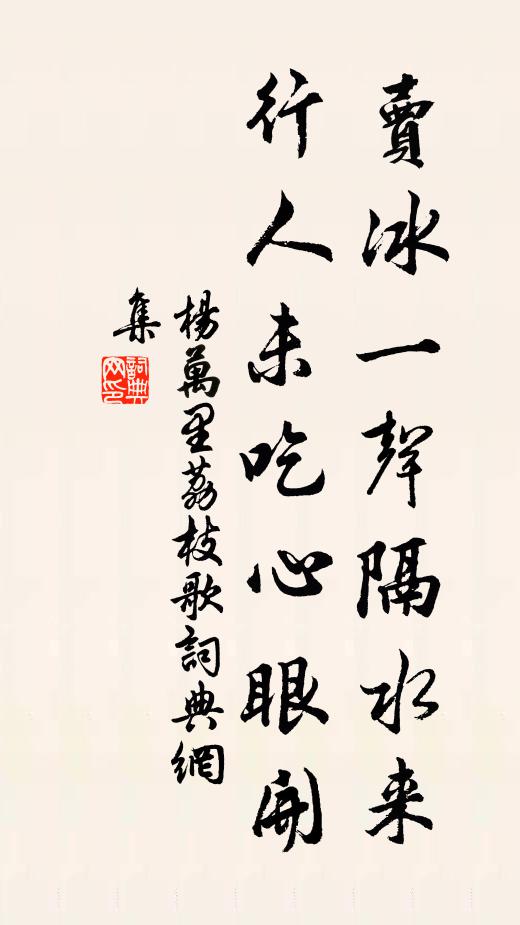 賣冰一聲隔水来
行人未吃心眼開
楊萬里荔枝歌詞典網
集
詞典
网印